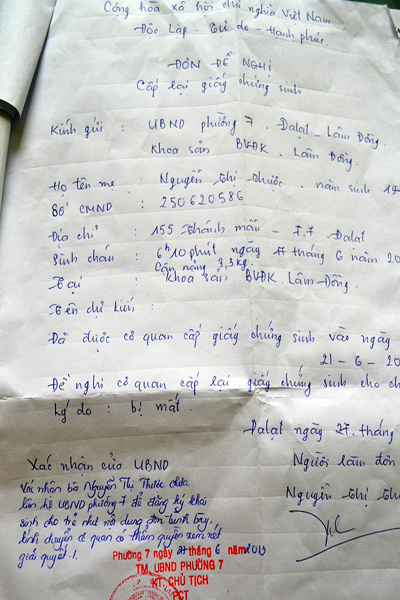 Cộng hòa xã hội chủ nghĩa Việt Nam
Độc Lập - Tự do - Hạnh phúc
ĐƠN ĐỀ NGHỊ
Cấp lại giấy chứng sinh
Kính gửi : UBND phường 7 . Dalat - Lâm Đồng
Khoa sản BVĐK . Lâm Đồng.
Họ tên mẹ : Nguyễn Thị Thược . năm sinh 19
Số CMND : 250620586
Địa chỉ : 155 Thánh mẫu - F.7 Dalat
Sinh cháu : 6h10 phút ngày 17 tháng 6 năm 20
Cân nặng 3,3kg.
Tại : Khoa sản BVĐK . Lâm Đồng.
Tên dự kiến :
Đã được cơ quan cấp giấy chứng sinh vào ngày
21 - 6 - 20
Đề nghị cơ quan cấp lại giấy chứng sinh cho ch
Lý do : bị mất
Dalat ngày 27. tháng
Xác nhận của UBND
Người làm đơn
Xác nhận bà Nguyễn Thị Thược chưa
liên hệ UBND phường 7 để đăng ký khai
sinh cho trẻ như nội dung đơn trình bày.
Kính chuyển cơ quan có thẩm quyền xem xét
giải quyết ./.
Nguyễn Thị Thư
Phường 7 ngày 27 tháng 6 năm 2013
TM. UBND PHƯỜNG 7
KT. CHỦ TỊCH
PCT